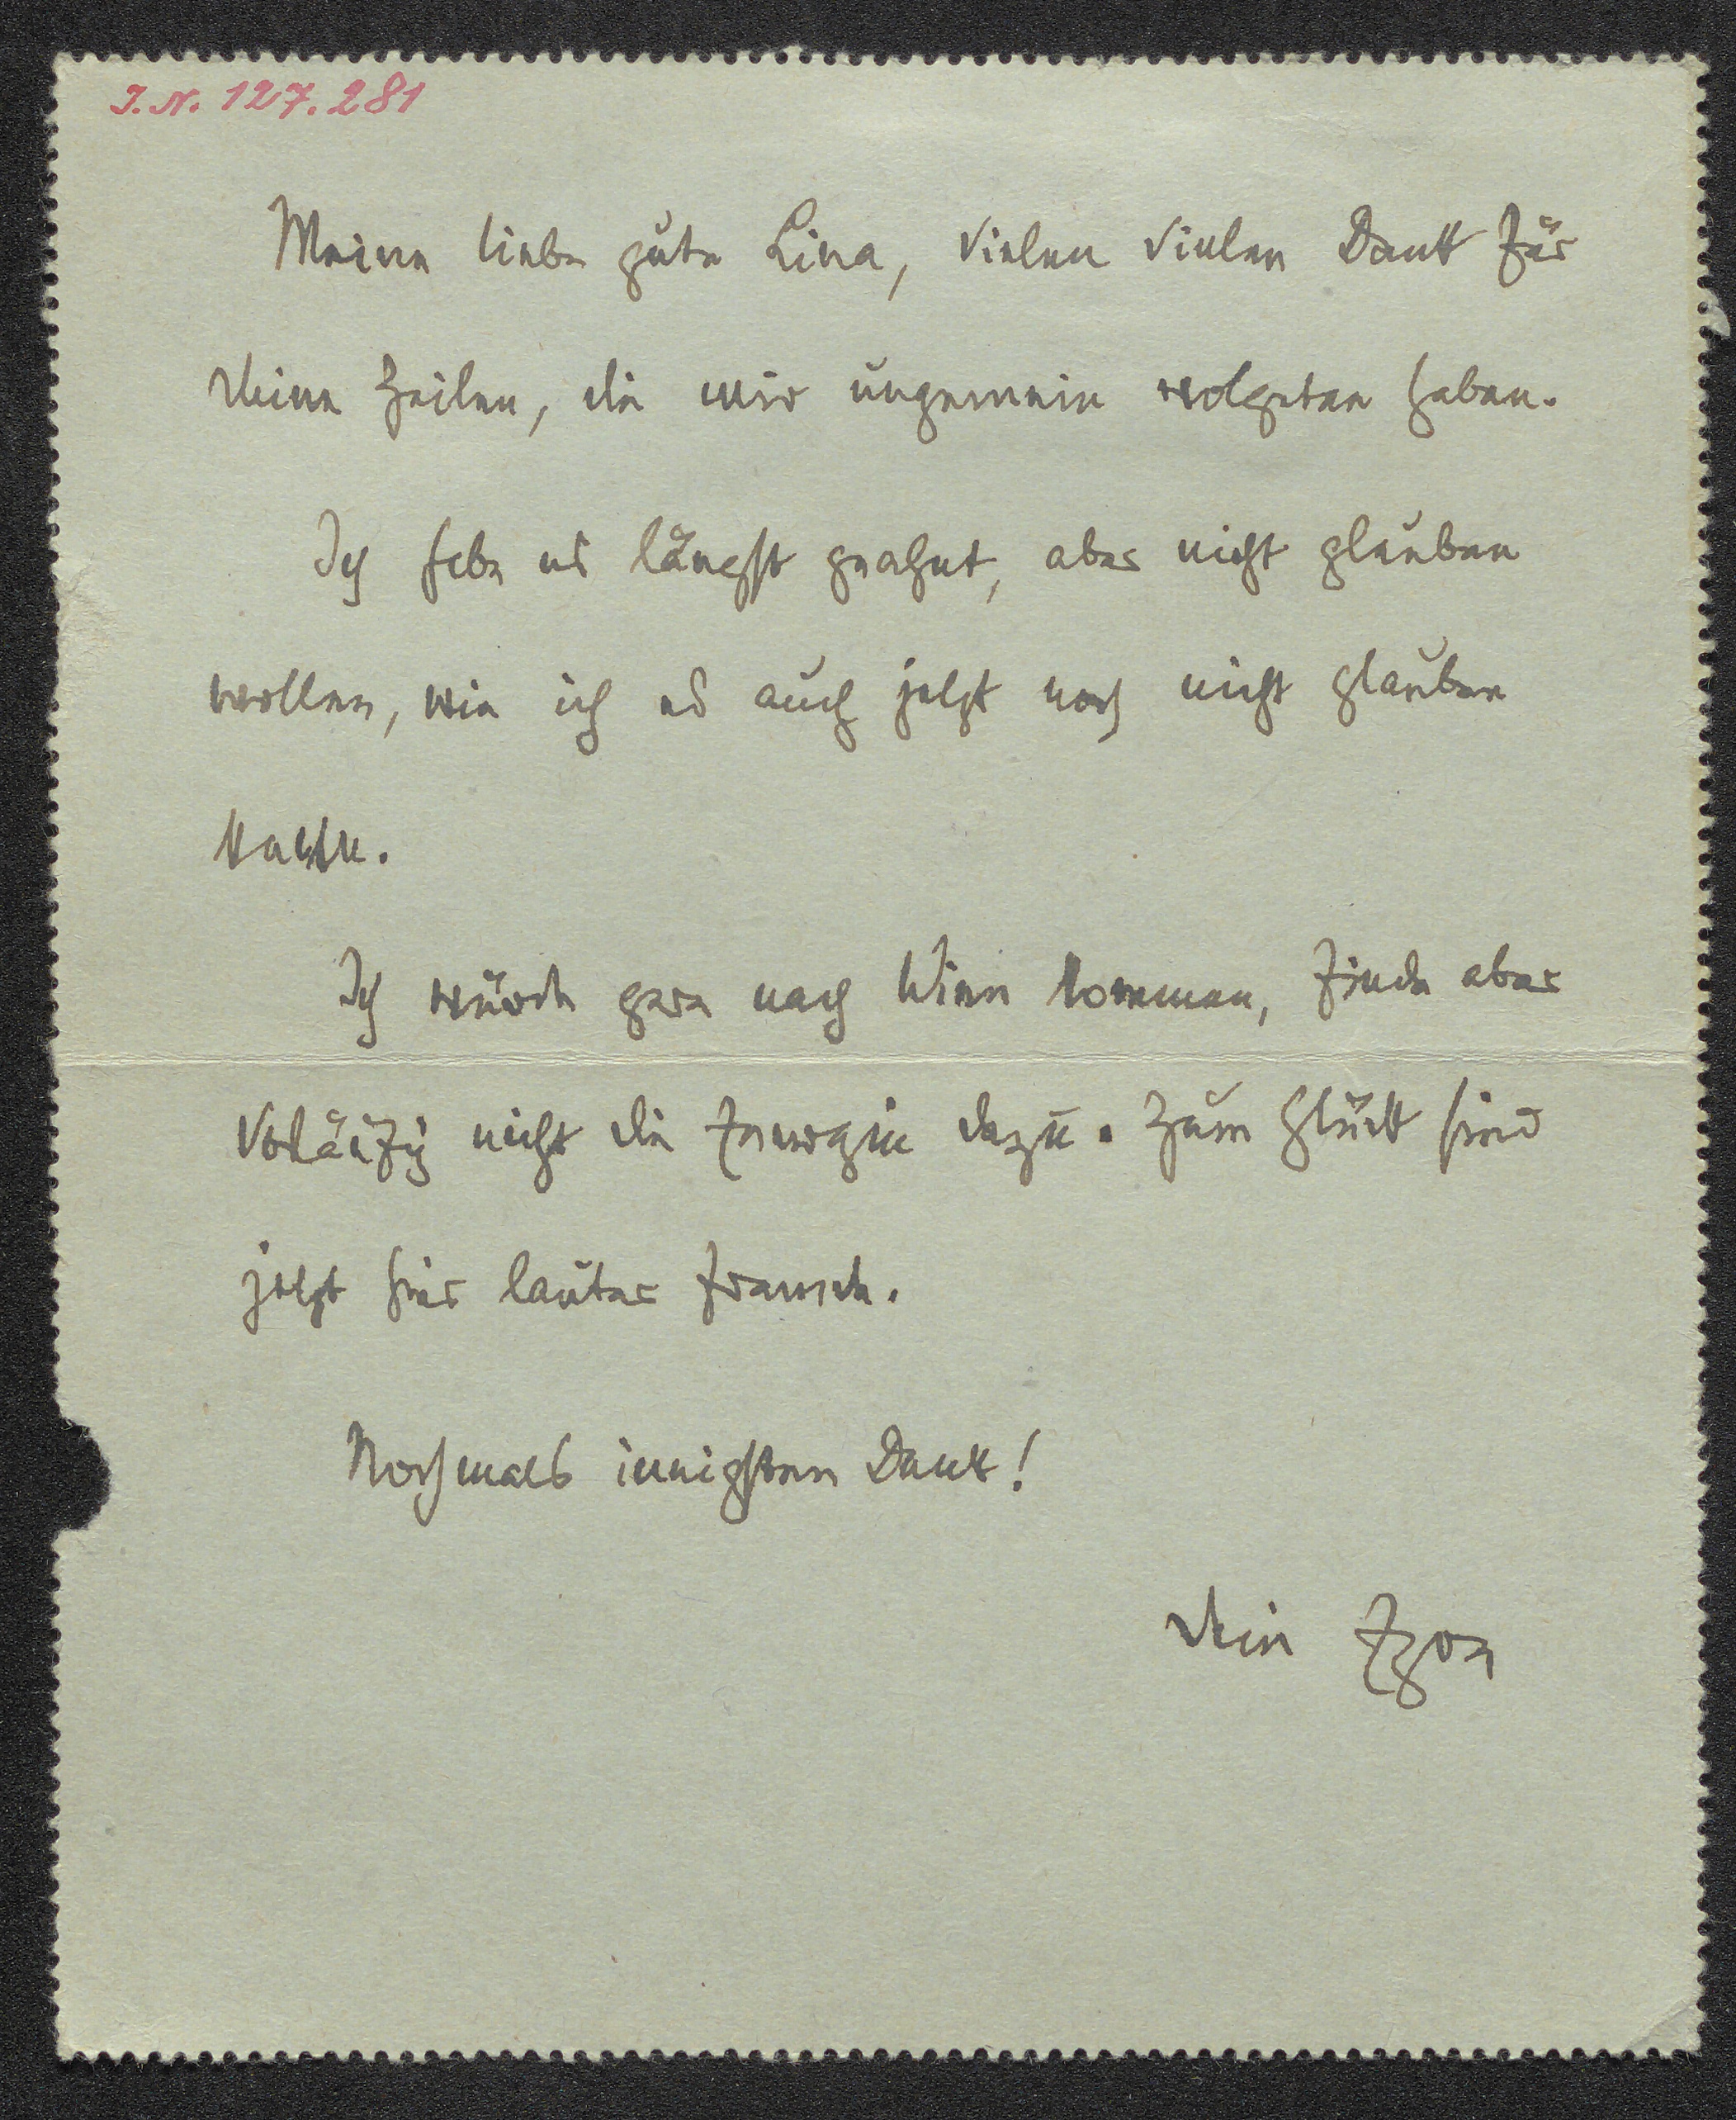 I. N. 127.281
Meine liebe gute Lina, vielen vielen Dank für
deine Zeilen, die mir ungemein wolgetan haben.
Ich habe es längst geahnt, aber nicht glauben
wollen, wie ich es auch jetzt noch nicht glauben
kann.
Ich würde gern nach Wien kommen, finde aber
vorläufig nicht die Energie dazu. Zum Glück sind
jetzt hier lauter Fremde.
Nochmals innigsten Dank!
dein Egon